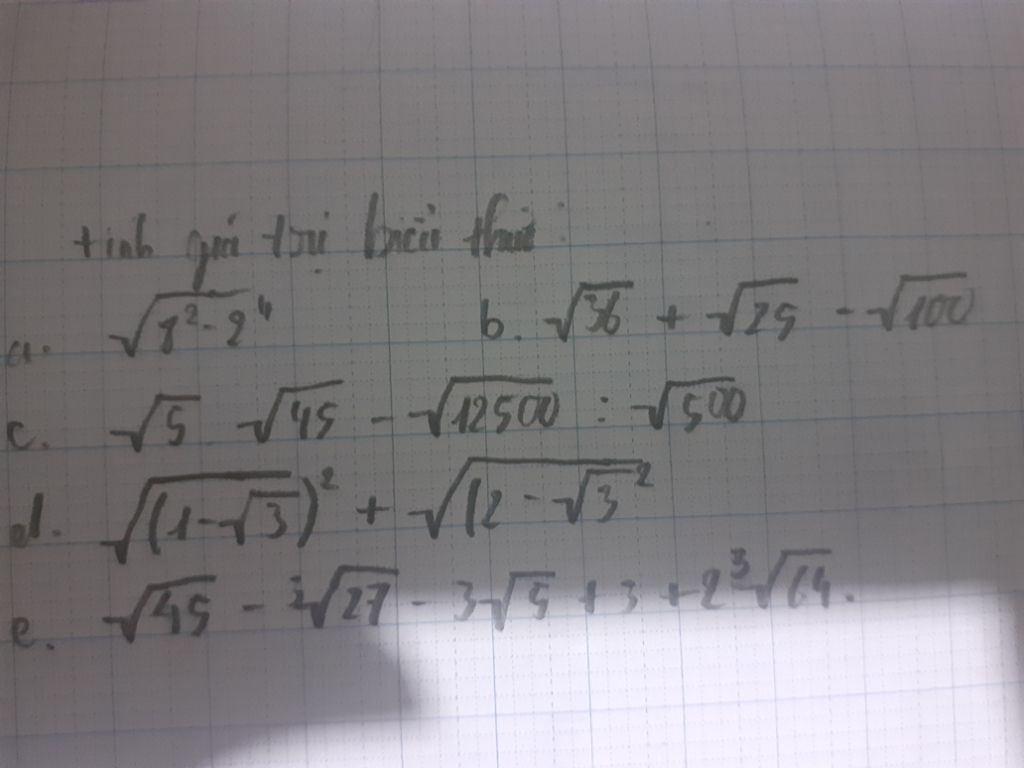 tính giá trị biểu thức:
a. √(8² - 2⁴) b. √36 + √25 - √100
c. √5 √45 - √12500 : √500
d. √(1-√3)² + √(2 - √3²
e. √45 - ³√27 - 3√5 + 3 + 2³√64.